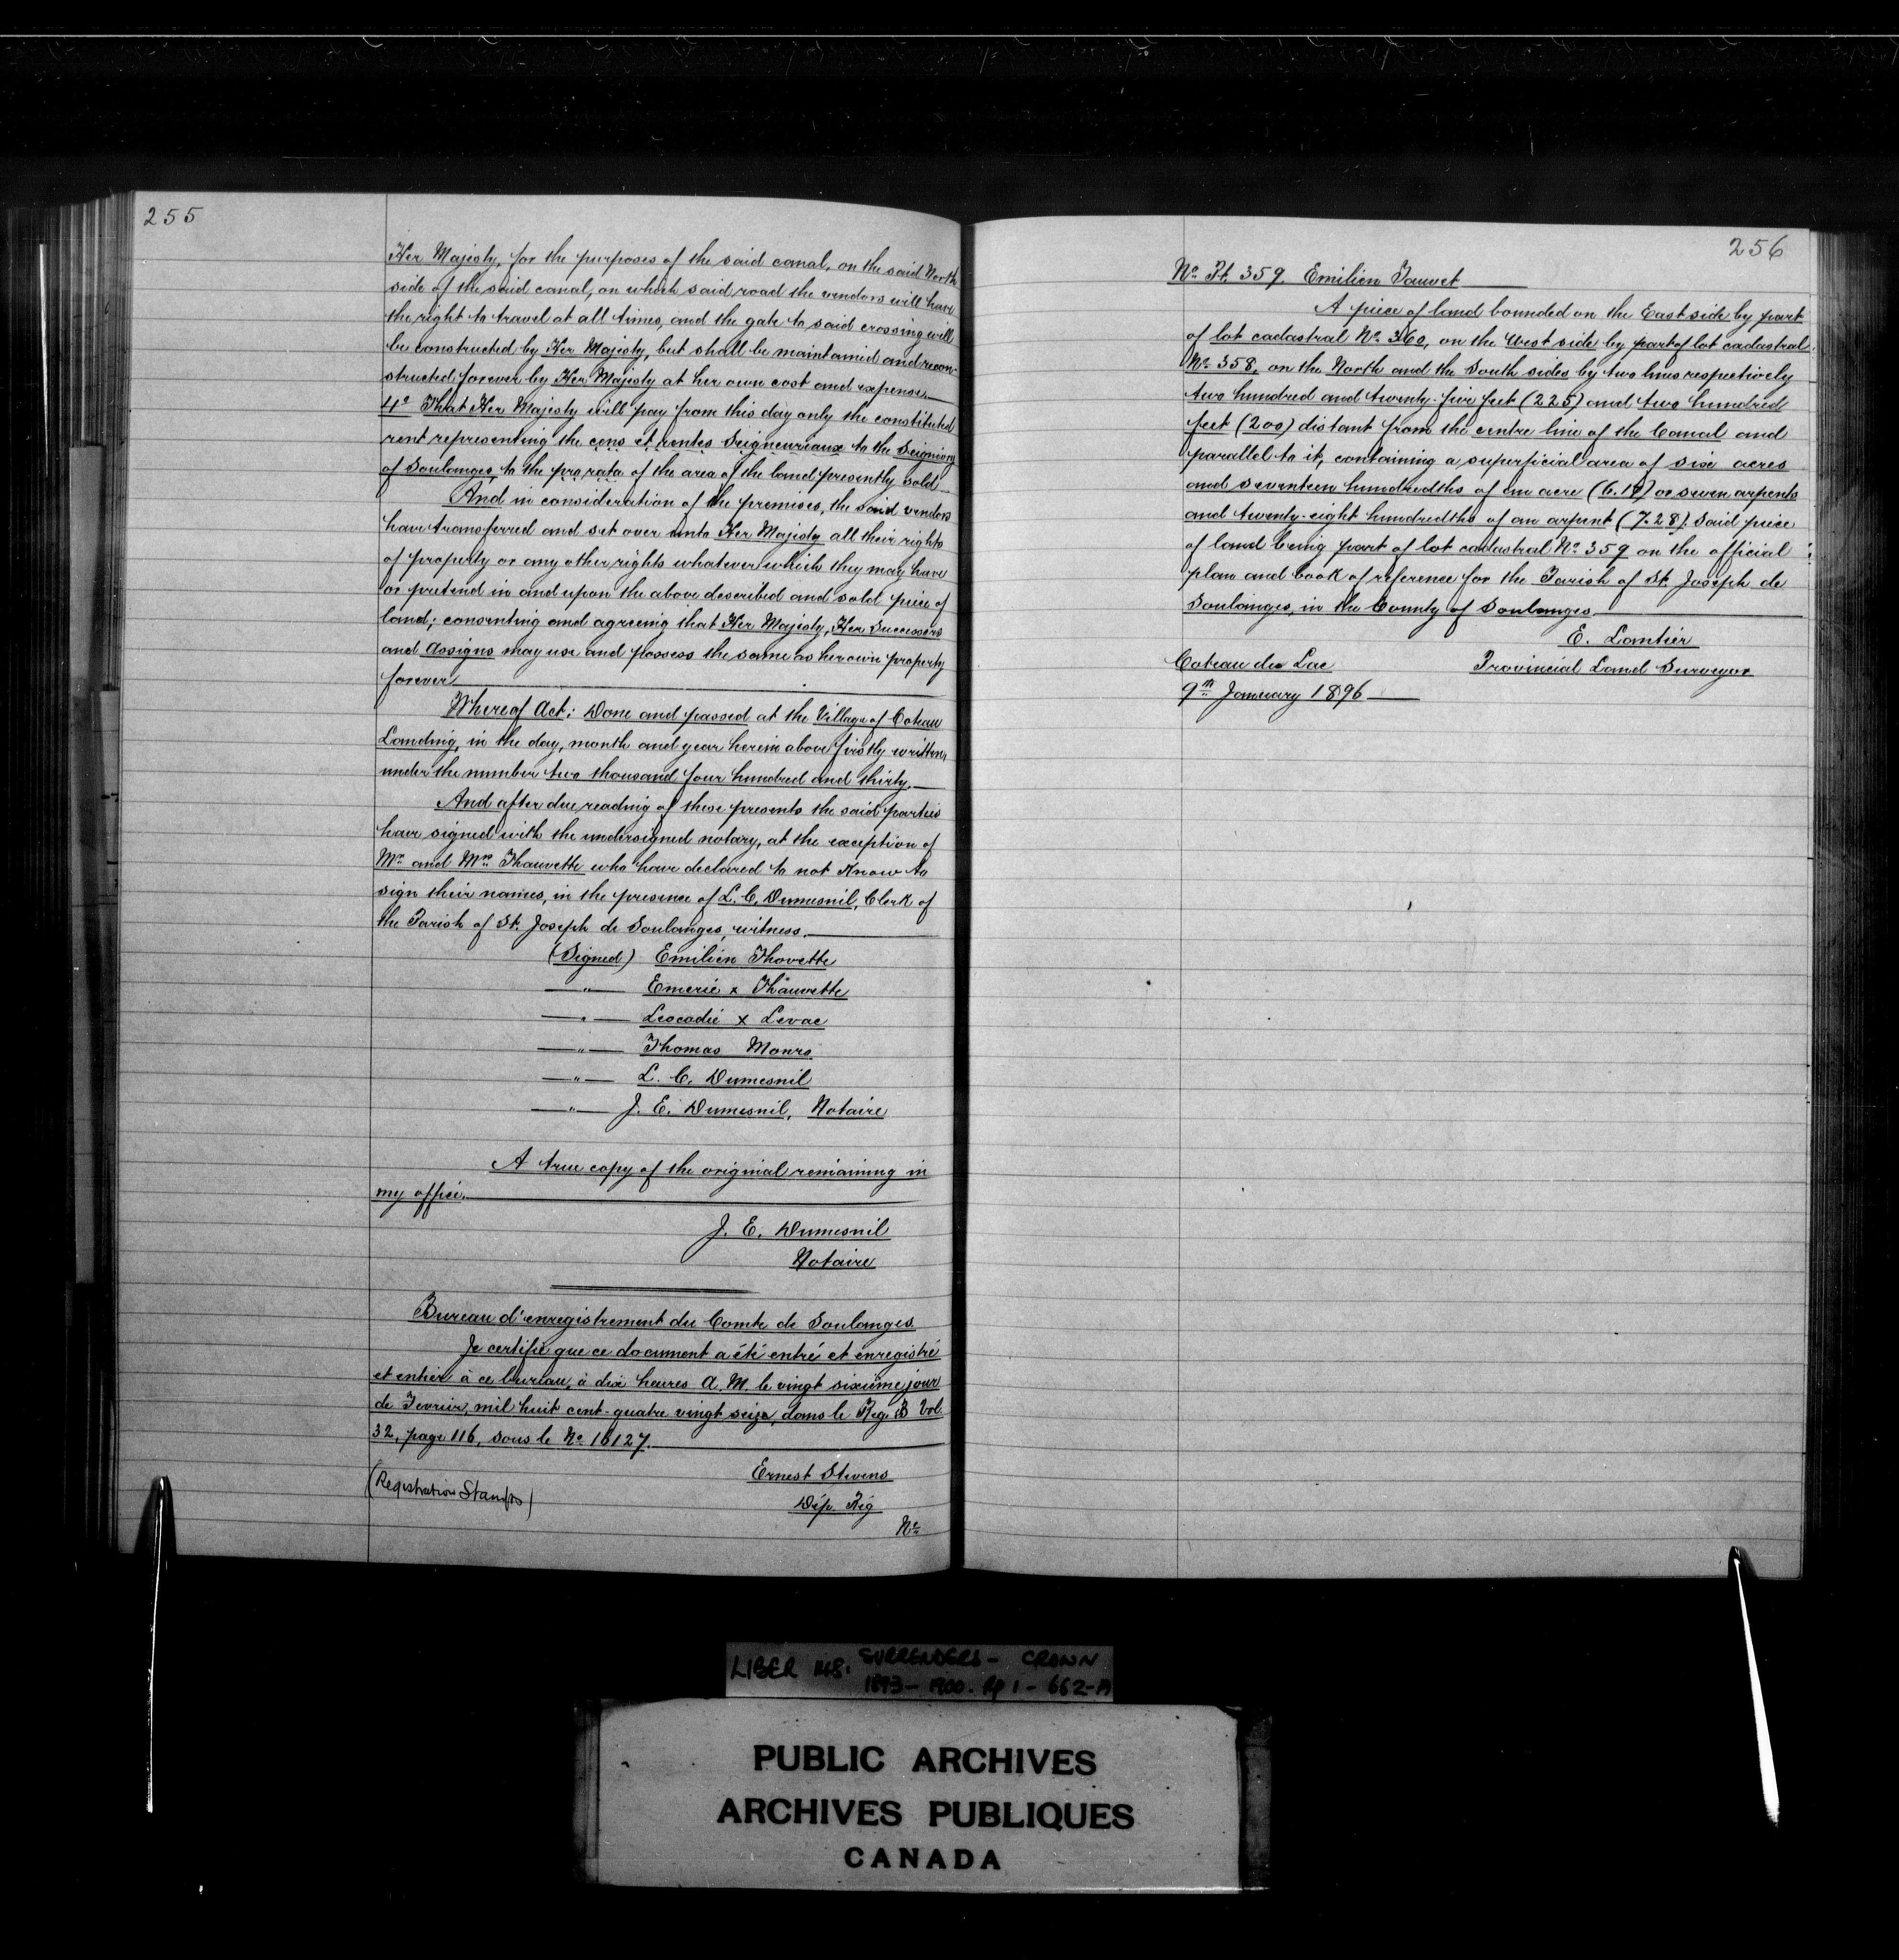 255
Her Majesty, for the purposes of the said canal, on the said North
side of the said canal, on which said road the vendors will have
the right to travel at all times, and the gate to said crossing will
be constructed by Her Majesty, but shall be maintained and recon-
structed forever by Her Majesty at her own cost and expense.
4º That Her Majesty will pay from this day only the constituted
rent representing the cens et rentes Seigneuriaux to the Seigniory
of Soulanges, to the pro rata of the area of the land presently sold
And in consideration of the premises, the said vendors
have transferred and set over unto Her Majesty all their rights
of property or any other rights whatever which they may have
or pretend in and upon the above described and sold piece of
land; consenting and agreeing that Her Majesty, Her Successors
and Assigns may use and possess the same as her own property
forever
Whereof Act: Done and passed at the Village of Coteau
Landing, in the day, month and year herein above firstly written,
under the number two thousand four hundred and thirty.
And after due reading of these presents the said parties
have signed with the undersigned notary, at the exception of
Mr. and Mrs. Thauvette who have declared to not know to
sign their names, in the presence of L. C. Dumesnil, Clerk of
the Parish of St. Joseph de Soulanges, witness.
(Signed) Emilien Thovette
—"— Emerie x Thauvette
—"— Leocadie x Levac
—"— Thomas Monro
—"— L. C. Dumesnil
—"— J. E. Dumesnil, Notaire
A true copy of the original remaining in
my office.
J. E. Dumesnil
Notaire
Bureau d'enregistrement du Comte de Soulanges.
Je certifie que ce document a été entré et enregistré
et entier à ce bureau, à dix heures A. M. le vingt sixième jour
de Fevrier, mil huit cent-quatre vingt seize, dans le Reg. B Vol.
32, page 116, sous le No 16127.
Ernest Stevens
Dép. Reg
(Registration Stamps)
No
256
No Pt. 359. Emilien Sauvet
A piece of land bounded on the East side by part
of lot cadastral No 360, on the West side by part of lot cadastral
No 358, on the North and the South sides by two lines respectively
two hundred and twenty-five feet (225) and two hundred
feet (200) distant from the centre line of the Canal and
parallel to it, containing a superficial area of six acres
and seventeen hundredths of an acre (6.17) or seven arpents
and twenty-eight hundredths of an arpent (7.28). Said piece
of land being part of lot cadastral No 359 on the official
plan and book of reference for the Parish of St. Joseph de
Soulanges, in the County of Soulanges.
E. Lantier
Coteau du Lac Provincial Land Surveyor
9th January 1896
LIBER 148: SURRENDERS - CROWN
1893 - 1900. Pp 1 - 662-A
PUBLIC ARCHIVES
ARCHIVES PUBLIQUES
CANADA